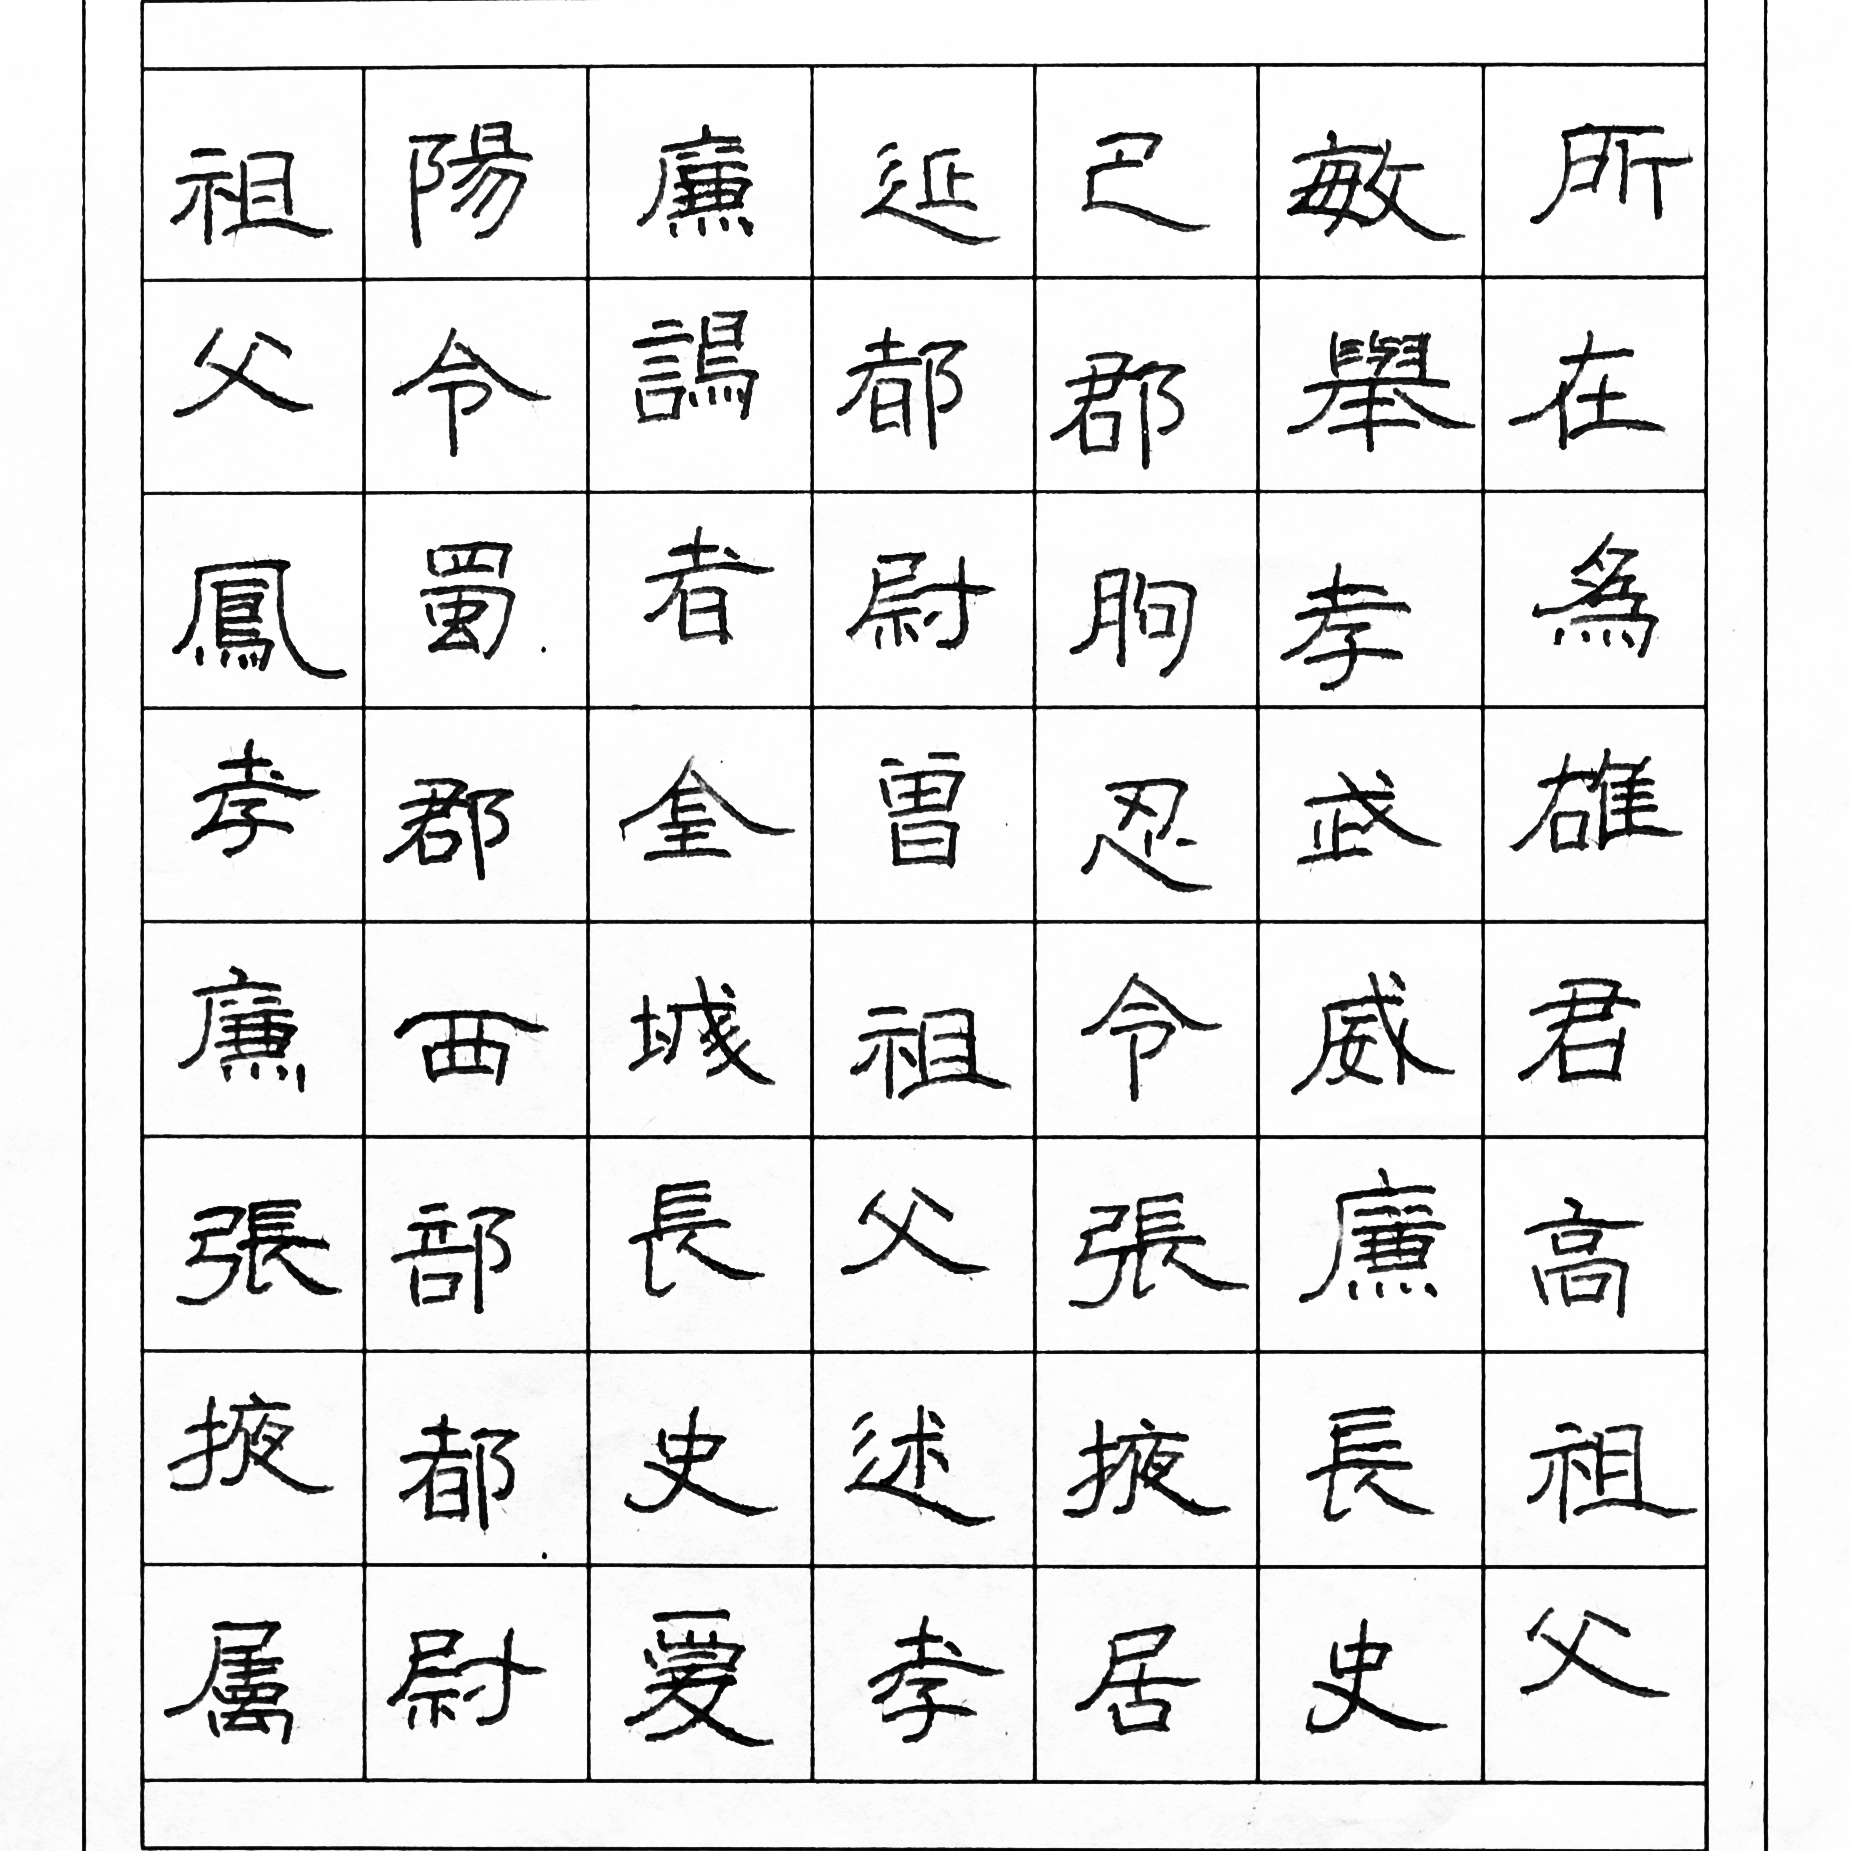 所在為雄君高祖父
敏舉孝武威廉長史
巴郡朐忍令張掖居
延都尉曾祖父述孝
廉謁者金城長史夏
陽令蜀郡西部都尉
祖父鳳孝廉張掖屬